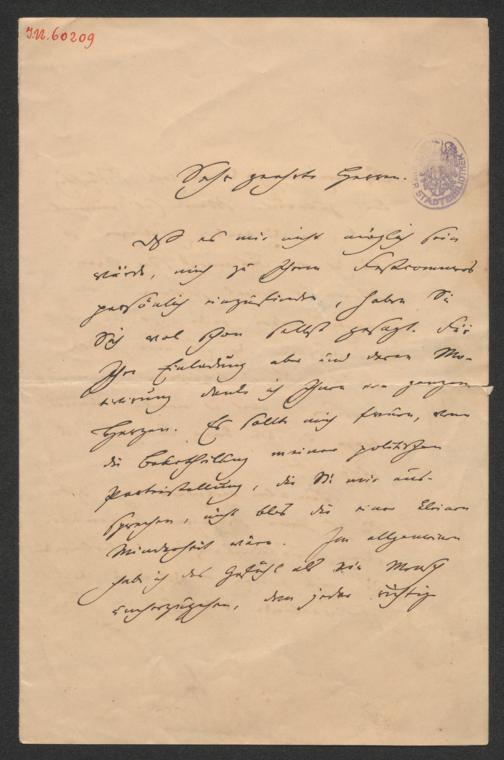 I.N. 60209
STADTBIBLIOTHEK
Sehr geehrte Herren.
Daß es mir nicht möglich sein
würde, mich zu Ihrem Festcommers
persönlich einzufinden, haben Sie
Sich wol schon selbst gesagt. Für
Ihre Einladung aber und deren Mo-
tivirung danke ich Ihnen von ganzem
Herzen. Es sollte mich freuen, wenn
die Beurtheilung meiner politischen
Parteistellung, die Sie mir aus-
sprechen, nicht blos die einer kleinen
Minderheit wäre. Im allgemeinen
habe ich das Gefühl als ein Mensch
umherzugehen, dem jeder richtige